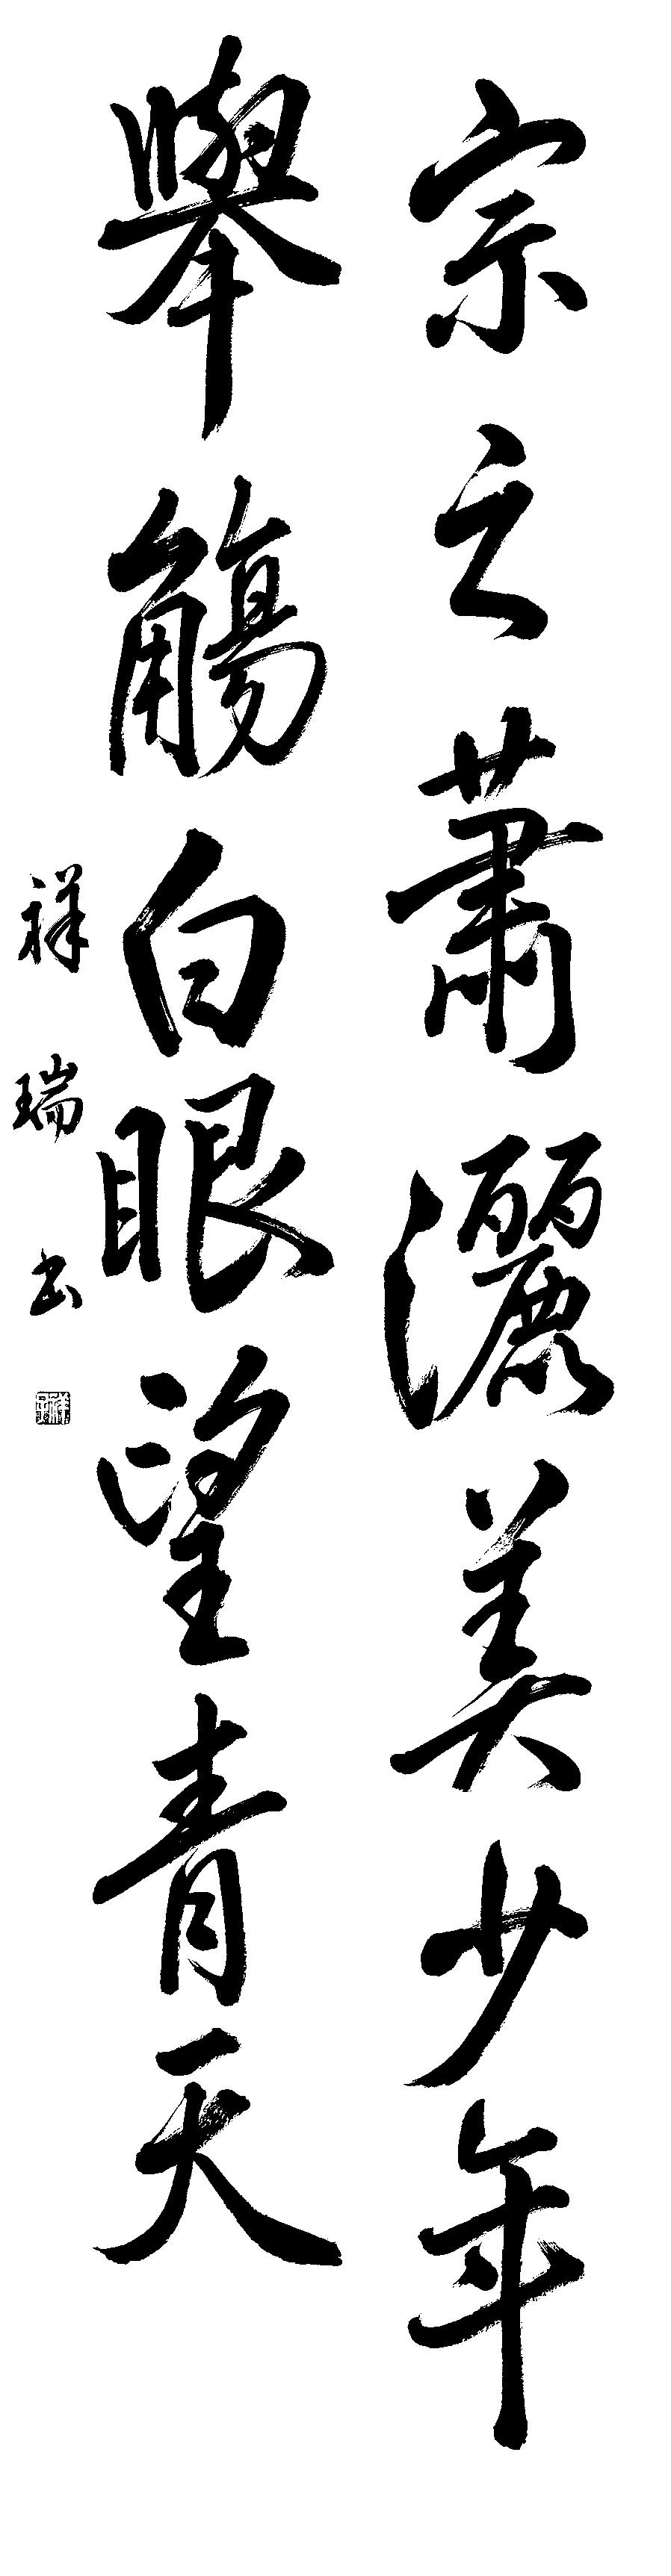 宗之蕭灑美少年
舉觴白眼望青天
祥瑞书